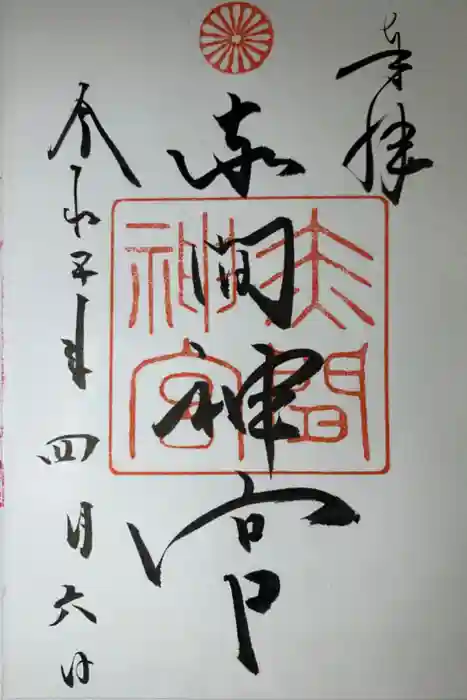 奉拝
赤間神宮
令和五年四月六日
赤間
神宮